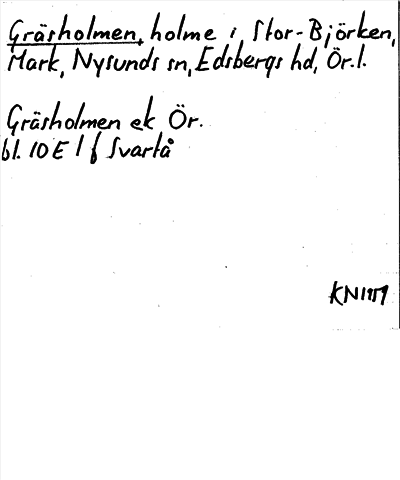 Gräsholmen, holme i Stor-Björken,
Mark, Nysunds sn, Edsbergs hd, Ör. l.
Gräsholmen ek Ör.
bl. 10 E 1 f Svartå
KN